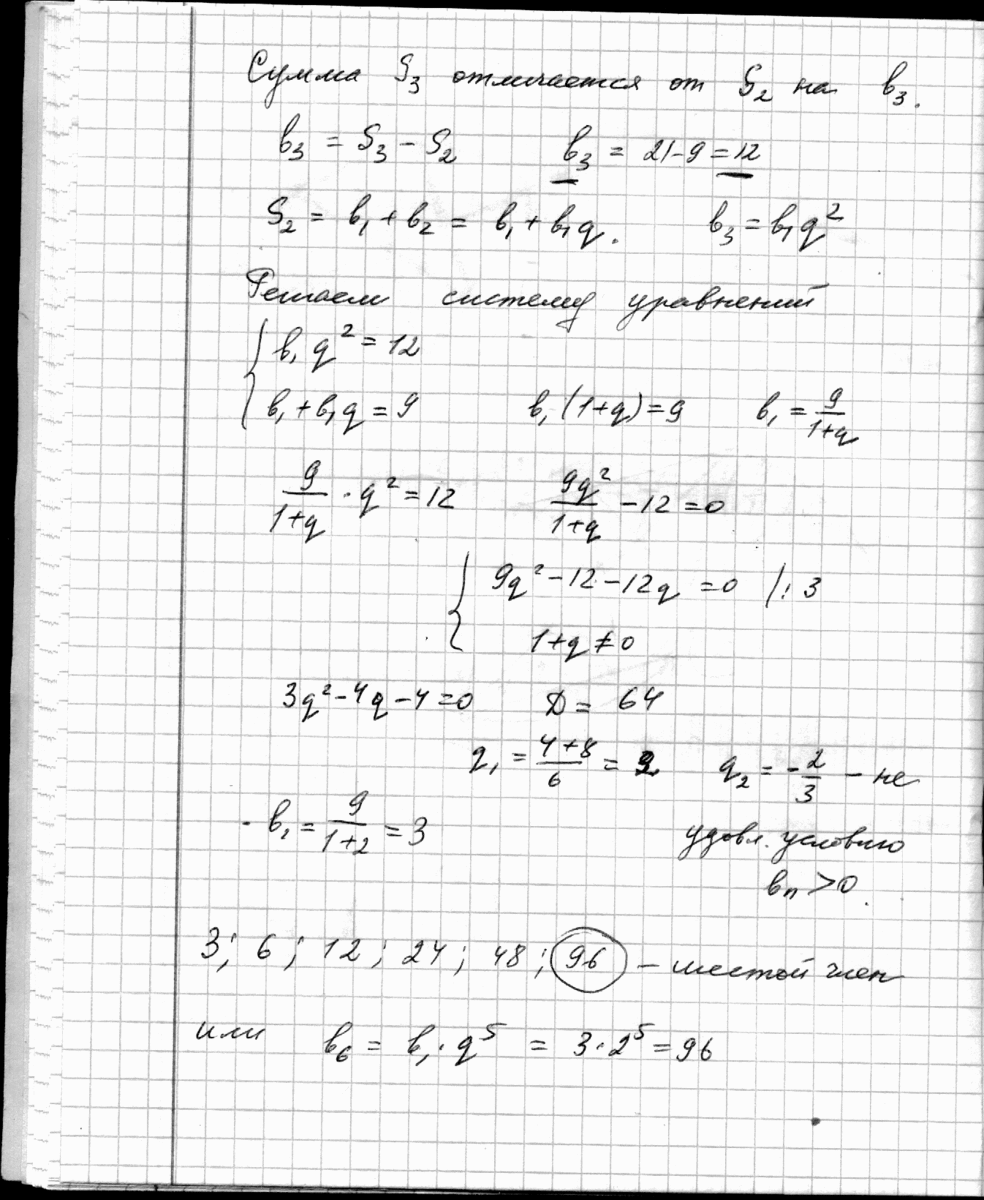 Сумма S₃ отличается от S₂ на b₃.
b₃ = S₃ − S₂ b₃ = 21−9 = 12
S₂ = b₁ + b₂ = b₁ + b₁q. b₃ = b₁q²
Решаем систему уравнений
{ b₁q² = 12
b₁ + b₁q = 9 b₁(1+q) = 9 b₁ = 9/(1+q)
9/(1+q) · q² = 12 9q²/(1+q) − 12 = 0
{ 9q² − 12 − 12q = 0 |: 3
1+q ≠ 0
3q² − 4q − 4 = 0 D = 64
q₁ = (4+8)/6 = 2 q₂ = −2/3 − не
b₁ = 9/(1+2) = 3 удовл. условию
bₙ > 0.
3; 6; 12; 24; 48; 96 − шестой член
или b₆ = b₁·q⁵ = 3·2⁵ = 96